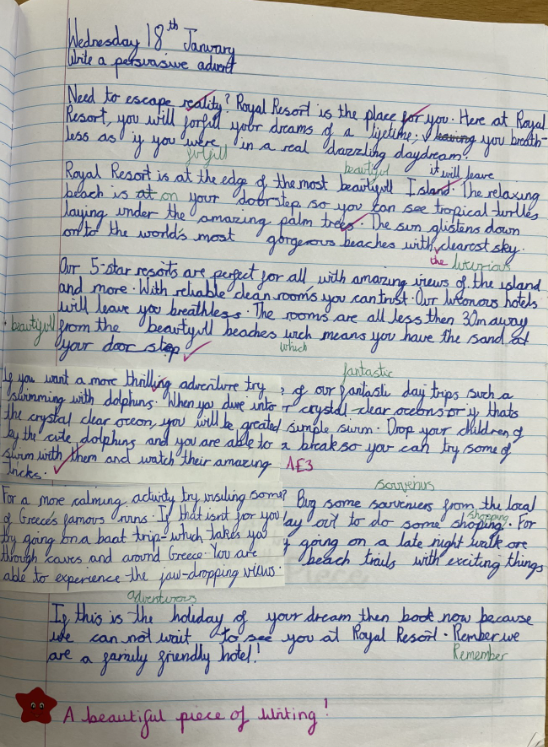 Wednesday 18th January
Write a persuasive advert
Need to escape reality? Royal Resort is the place for you. Here at Royal
Resort, you will forfill your dreams of a lifetime; leaving you breath-
less as if you were in a real dazzling daydream.
fulfill
beautiful it will leave
Royal Resort is at the edge of the most beautifull Island. The relaxing
beach is at on your doorstep so you can see tropical turtles
laying under the amazing palm trees. The sun glistens down
onto the world's most gorgeous beaches with clearest sky.
the luxurious
Our 5-star resorts are perfect for all, with amazing views of the island
and more. With reliable clean rooms you can trust. Our luxorous hotels
will leave you breathless. The rooms are all less then 30m away
• beautifull from the beautyvll beaches wich means you have the sand at
your door step
which
fantastic
If you want a more thrilling adventure try , of our fantastic day trips such a
swimming with dolphins. When you dive into r crystal-clear oceans or if thats
the crystal clear ocean, you will be greated simple swim. Drop your children of
by the cute dolphins and you are able to a break so you can try some of
swim with them and watch their amazing AE3
tricks.
souvenirs
For a more calming activity try visiting some? Buy some sarveniers from the local
of Greece's famous ruins. If that isnt for you lay out to do some shoping. For
shopping
try going on a boat trip-which takes you t going on a late night walk are
through caves and around Greece. You are beach trails with exciting things
able to experience the jaw-dropping views.
adventurous
If this is the holiday of your dream then book now because
we can not wait to see you at Royal Resort. Rember we
are a family friendly hotel!
Remember
A beautiful piece of writing!